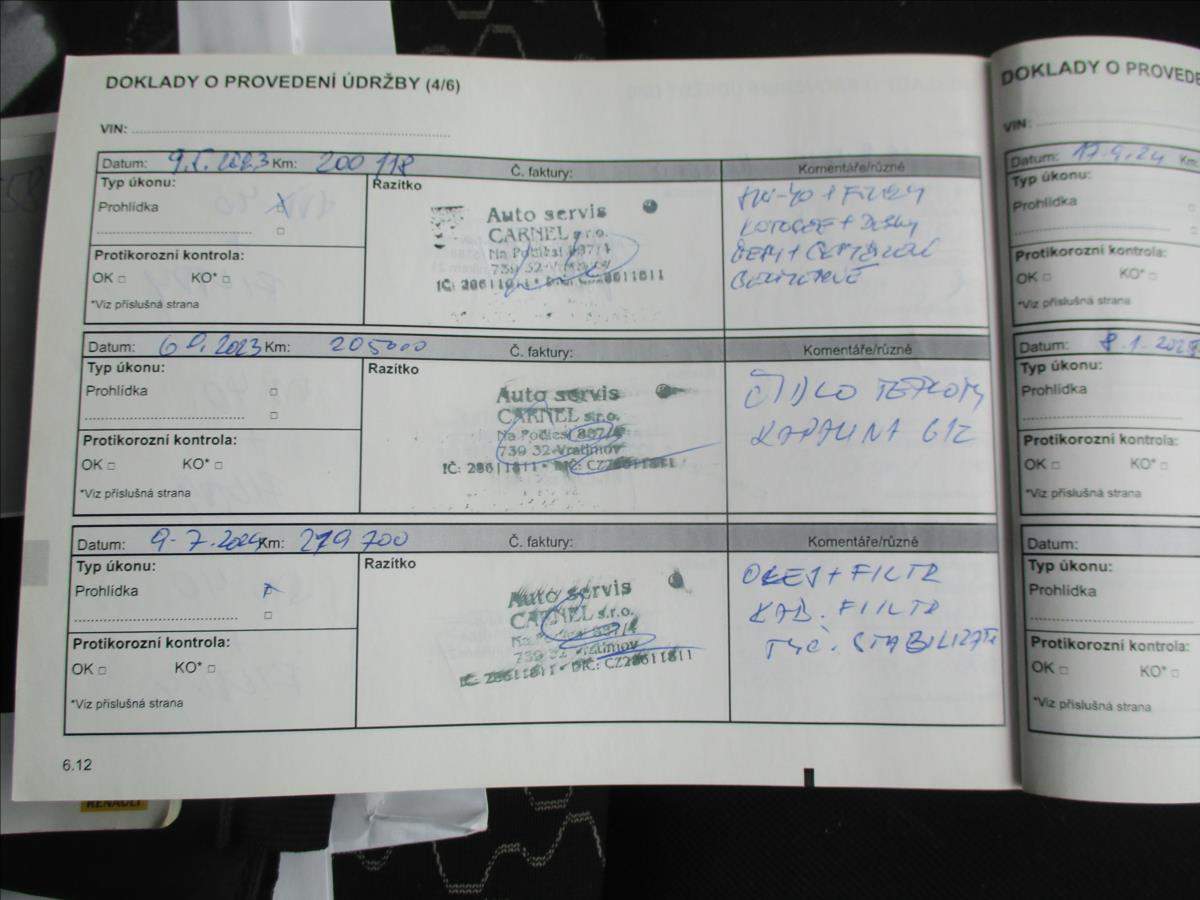 DOKLADY O PROVEDENÍ ÚDRŽBY (4/6)
VIN:
Datum: 9.5.2023 Km: 200 118 Č. faktury: Komentáře/různé
Typ úkonu:
Razítko
Prohlídka X □
□
Protikorozní kontrola:
OK □ KO* □
*Viz příslušná strana
Auto servis
CARNEL s.r.o.
Na Podlesí 897/4
739 32 Vratimov
5W-40 + FILTRY
KOTOUČE + Desky
Datum: 2023 Km: 205000 Č. faktury: Komentáře/různé
Typ úkonu:
Razítko
Prohlídka □
□
Protikorozní kontrola:
OK □ KO* □
*Viz příslušná strana
Auto servis
CARNEL s.r.o.
Na Podlesí 897/4
739 32 Vratimov
IČ: 28611811 • DIČ: CZ28611811
ČIDLO TEPLOTY
KAPALINA G12
Datum: 9.7.2024 Km: 279 700 Č. faktury: Komentáře/různé
Typ úkonu:
Razítko
Prohlídka
□
Protikorozní kontrola:
OK □ KO* □
*Viz příslušná strana
Auto servis
CARNEL s.r.o.
897/4
739 32 Vratimov
28611811 • DIČ: CZ28611811
OLEJ + FILTR
KAB. FIILTR
TYČ. STABILIZAT
6.12
RENAULT
DOKLADY O PROVEDE
VIN:
Datum: 17.9.24 Km
Typ úkonu:
Prohlídka
Protikorozní kontrola:
OK □ KO* □
*Viz příslušná strana
Datum: 8.1.202
Typ úkonu:
Prohlídka
Protikorozní kontrola:
OK □ KO* □
*Viz příslušná strana
Datum:
Typ úkonu:
Prohlídka
Protikorozní kontrola:
OK □ KO* □
*Viz příslušná strana